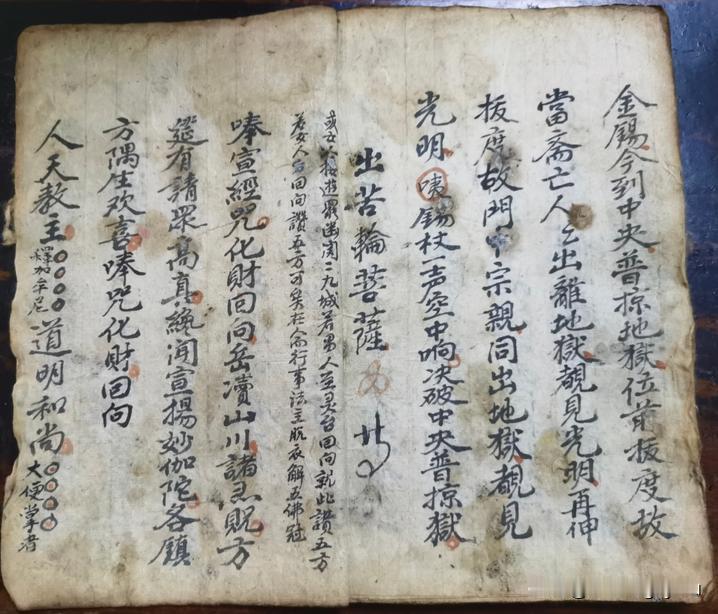 金錫今到中央普掠地獄位前拔度故
當斋亡人々出離地獄覩見光明再伸
拔度故門中宗親同出地獄覩見
光明 唪 錫杖一声空中响决破中央普掠獄
出苦輪菩薩
或女人 遊 幽関二九城若男人至灵台回向就此讚五方
若女人 回向讚五方可矣在俞行事法主脱衣解五佛冠
唪宣經咒化財回向岳瀆山川諸 方
筵有請眾高真纔闻宣揚妙伽陀各鎮
方隅生欢喜唪咒化財回向
人天教主○○○○釋加牟尼道明和尚○○○○大使掌者